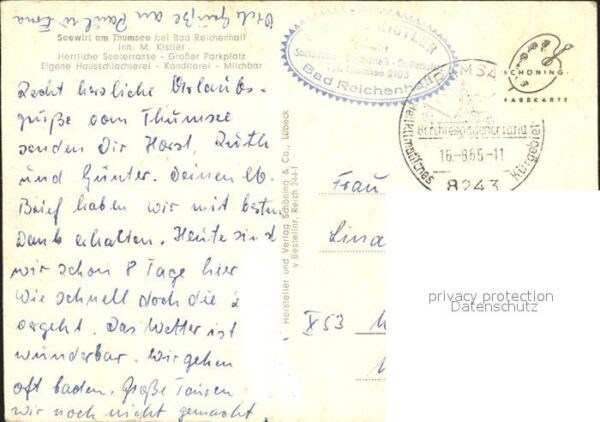 Viele Grüße an Paul u. Erna
Seewirt am Thumsee bei Bad Reichenhall
Inh. M. Kistler
Herrliche Seeterrasse - Großer Parkplatz
Eigene Hausschlachterei - Konditorei - Milchbar
Recht herzliche Urlaubs-
grüße vom Thumsee
senden Dir Horst, Ruth
und Günter. Deinen lb.
Brief haben wir mit bestem
Dank erhalten. Heute sind
wir schon 8 Tage hier
wie schnell doch die
vergeht. Das Wetter ist
wunderbar. Wir gehen
oft baden. Große Touren
wir noch nicht gemacht
Hersteller und Verlag Schöning & Co., Lübeck
Bestellnr. Reich 244-1
KISTLER
Seewirt
Gr. Parkplatz
Thumsee 2105
Bad Reichenhall
RAMSA
Berchtesgadener Land
16.-8.65-11
Heilklimatisches Kurgebiet
8243
SCHÖNING
FARBKARTE
Frau
Lina
X53
privacy protection
Datenschutz